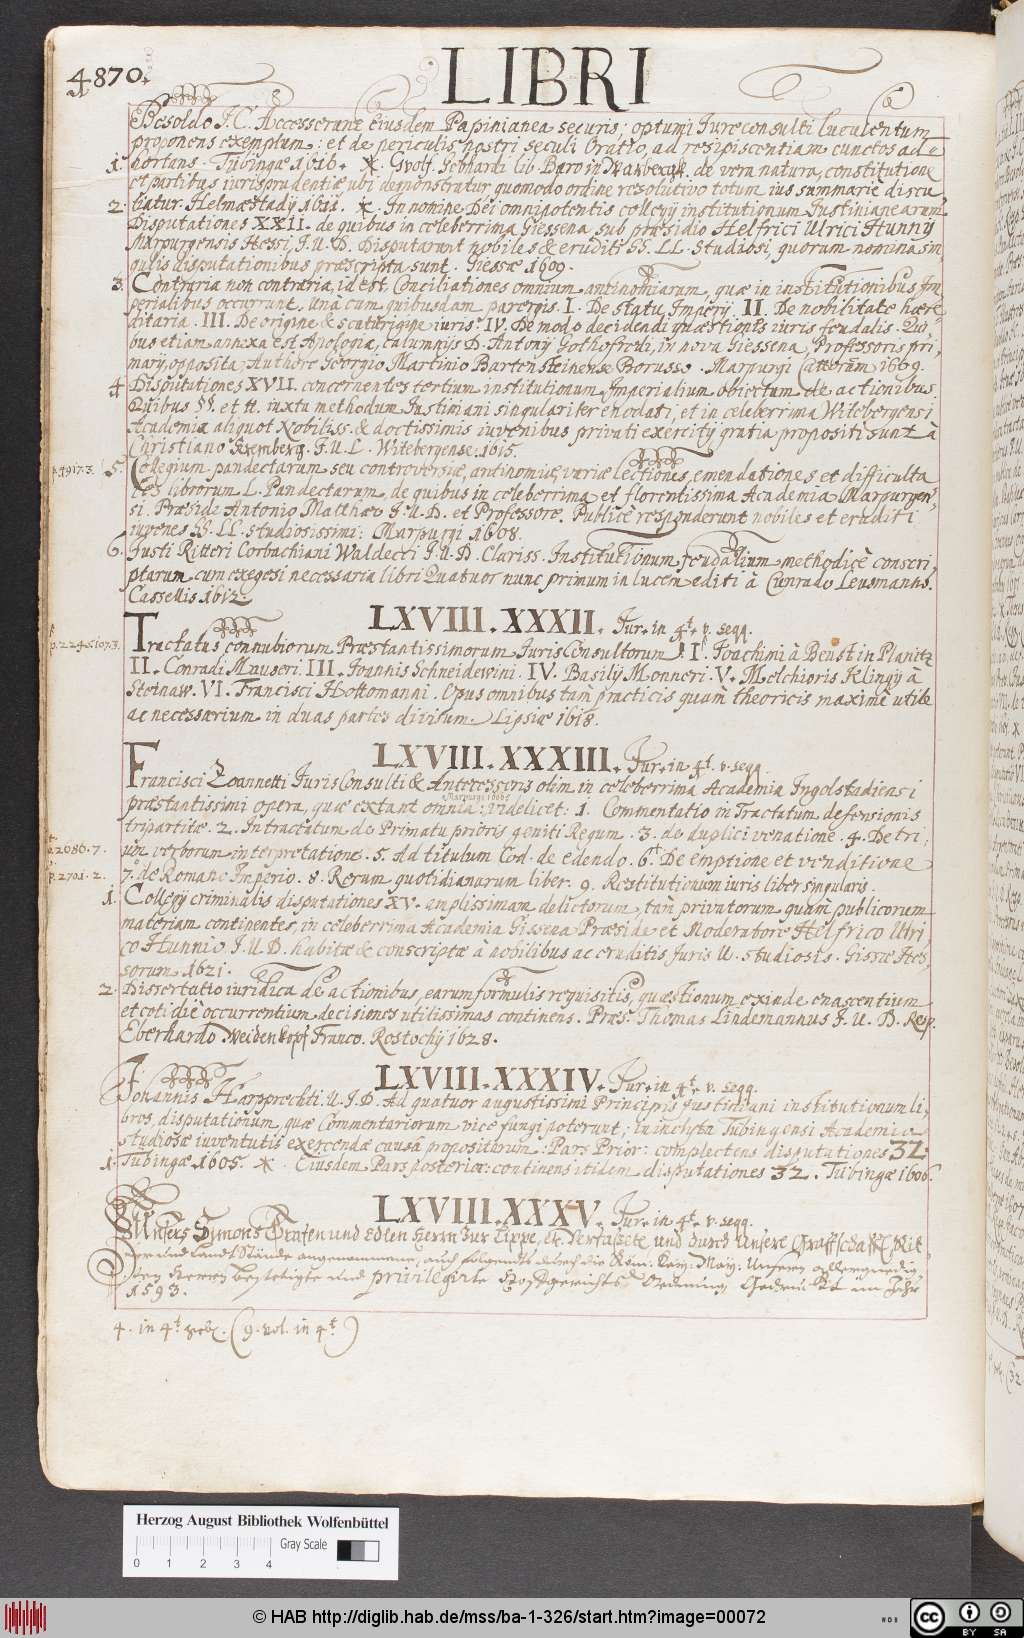 4870.
LIBRI
Besoldo J.C. Accesserunt eiusdem Papinianea securis; optumi Jureconsulti luculentum
proponens exemplum; et de periculis nostri seculi Oratio, ad resipiscentiam cunctos ad-
1. hortans. Tubingae 1616. * Gvolf. Gebhardi lib. Baro in Warbergk. de vera natura, constitutione
et partibus iurisprudentiae ubi demonstratur quomodo ordine resolutivo totum ius summarie discu
2. tiatur. Helmaestady 1611. * In nomine Dei omnipotentis collegy institutionum Justinianearum
Disputationes XXII. de quibus in celeberrima Giessena sub praesidio Helfrici Ulrici Hunny
Marpurgensis Hessi, J.U.D. Disputarunt nobiles & eruditi SS. LL. Studiosi, quorum nomina sin
gulis disputationibus praescripta sunt. Giessae 1609.
3. Contraria non contraria, id est, Conciliationes omnium antinomiarum, quae in institutionibus Im-
perialibus occurrunt, unà cum quibusdam parergis. I. De statu Impery II. De nobilitate haere-
ditaria. III. De origine & scaturigine iuris. IV. De modo decidendi quaestiones iuris feudalis. Qui,
bus etiam annexa est Apologia, calumnys D. Antony Gothofredi, in nova Giessena, Professoris pri,
mary, opposita, Authore Georgio Martinio Bartensteinense Borusso. Marpurgi Cattorum 1609.
4 Disputationes XVII. concernentes tertium institutionum Imperialium obiectum de actionibus
Quibus §§. et ff. iuxta methodum Justiniani singulariter enodati, et in celeberrima Witebergensi
Academia aliquot Nobiliss. & doctissimis iuvenibus privati exercity gratia propositi sunt à
Christiano Rremberg. J.U.L. Witebergense. 1615.
p.4917.3. 5. Collegium pandectarum seu controversiae, antinomiae, variae lectiones, emendationes et difficulta
tes librorum L. Pandectarum, de quibus in celeberrima et florentissima Academia Marpurgen,
si. Praeside Antonio Matthaeo J.U.D. et Professore. Publicè responderunt nobiles et eruditi
iuvenes SS. LL. studiosissimi: Marpurgi 1608.
6. Justi Ritteri Corbachiani Waldecci J.U.D. Clariss. Institutionum feudalium methodicè conscri,
ptarum cum exegesi necessaria libri Quatuor nunc primum in lucem editi à Cunrado Leusmanho.
Cassellis 1612
LXVIII. XXXII. Jur. in 4t. v. seqq.
Tractatus connubiorum Praestantissimorum JurisConsultorum I. Joachimi à Beust in Planitz
II. Conradi Mauseri. III. Joannis Schneidewini. IV. Basily Monneri. V. Melchioris Klingy à
Steinaw. VI. Francisci Hottomanni. Opus omnibus tam practicis quam theoricis maximè utile
ac necessarium in duas partes divisum. Lipsiae 1618.
LXVIII. XXXIII. Jur. in 4t. v. seqq.
Francisci Zoannetti JurisConsulti & Antecessoris olim in celeberrima Academia Ingolstadiensi
praestantissimi opera, quae extant omnia; videlicet: 1. Commentatio in Tractatum defensionis
tripartitae. 2. In tractatum de Primatu prioris geniti Regum. 3. de duplici venatione. 4. De tri,
p.2686.7. um verborum interpretatione. 5. Ad titulum Cod. de edendo. 6. De emptione et venditione
p.2701.2. 7. de Romano Imperio. 8. Rerum quotidianarum liber. 9. Restitutionum iuris liber singularis.
1. Collegy criminalis disputationes XV. amplissimam delictorum, tàm privatorum quàm publicorum
materiam continentes, in celeberrima Academia Gissena Praeside et Moderatore Helfrico Ulri,
co Hunnio J.U.D. habitae & conscriptae à nobilibus ac eruditis Juris U. studiosis. Gissae Hes,
sorum 1621.
2. Dissertatio iuridica de actionibus, earum formulis requisitis, quaestionum exinde enascentium
et cotidiè occurrentium decisiones utilissimas continens. Praes. Thomas Lindemannus J.U.D. Resp.
Eberhardo Weidenkopf Franco. Rostochy 1628.
LXVIII. XXXIV. Jur. in 4t. v. seqq.
Johannis Harpprechti U.J.D. Ad quatuor augustissimi Principis Justiniani institutionum li,
bros, disputationum, quae Commentariorum vice fungi poterunt; in inclyta Tubingensi Academia
studiosae iuventutis exercendae causà propositarum: Pars Prior: complectens disputationes 32.
1. Tubingae 1605. * Eiusdem Pars posterior: continens itidem disputationes 32. Tubingae 1606.
LXVIII. XXXV. Jur. in 4t. v. seqq.
Unsers Symons Grafen und Edlen Herrn zur Lippe, etc. Verfassete und durch Unsere Graffschafft Rit-
ter und Landt Stände angenommene, auch folgendts durch die Röm: Kay: May: Unsern allergnedig,
sten Herrn bestetigte und privilegirte Hoffgerichts Ordnung Gedruckt im Jahr
1593.
4. in 4t (9. vol. in 4t)
Herzog August Bibliothek Wolfenbüttel
Gray Scale
0 1 2 3 4
© HAB http://diglib.hab.de/mss/ba-1-326/start.htm?image=00072
WDB
cc BY SA